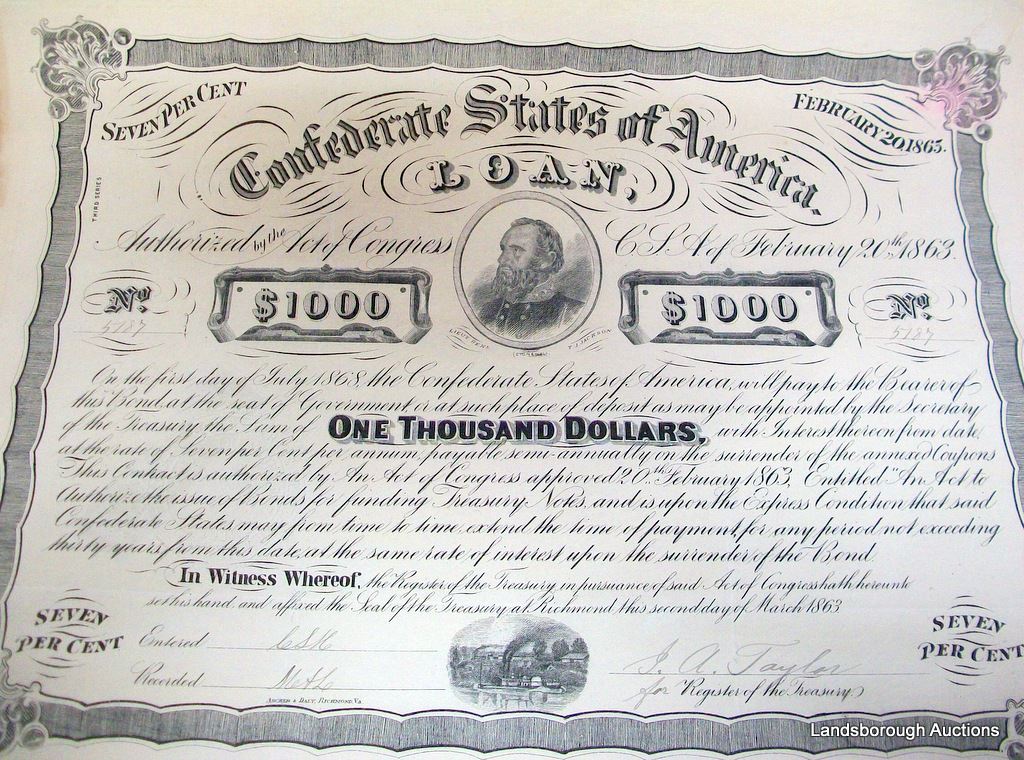 SEVEN PER CENT
FEBRUARY 20, 1863.
Confederate States of America.
LOAN,
THIRD SERIES
Authorized by the Act of Congress C.S.A. of February 20th, 1863.
No. 5787
$1000
$1000
No. 5787
LIEUT GENL T. J. JACKSON
On the first day of July 1868, the Confederate States of America, will pay to the Bearer of
this Bond, at the seat of Government or at such place of deposit as may be appointed by the Secretary
of the Treasury the Sum of ONE THOUSAND DOLLARS, with Interest thereon from date
at the rate of Seven per Cent per annum, payable semi-annually on the surrender of the annexed Coupons
This Contract is authorized by An Act of Congress approved 20th February 1863, Entitled "An Act to
Authorize the issue of Bonds for funding Treasury Notes, and is upon the Express Condition that said
Confederate States may from time to time, extend the time of payment, for any period not exceeding
thirty years from this date, at the same rate of interest upon the surrender of the Bond
In Witness Whereof, the Register of the Treasury, in pursuance of said Act of Congress hath hereunto
set his hand and affixed the Seal of the Treasury, at Richmond this second day of March 1863
SEVEN
PER CENT
Entered
Recorded
ARCHER & DALY, RICHMOND, VA
J. A. Taylor
for Register of the Treasury
SEVEN
PER CENT
Landsborough Auctions